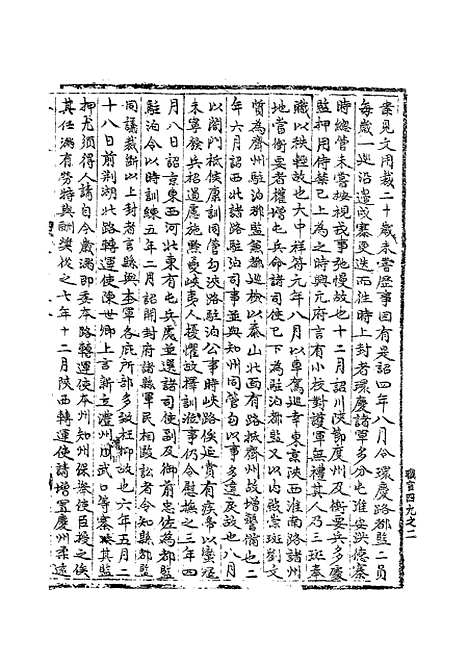 職官四九之二
業見文用裁二十歲未嘗歷事因有是詔四年八月令環慶路都監二員
每歲一巡沿邊戍寨更迭而往時上封者環慶諸軍多分屯淮安洪德寨
時總管未嘗按視戎事弛慢故也十二月詔川陝節度州及衝要兵多處
監押用侍禁已上為之時興元府言有小校對護軍無禮其人乃三班奉
職以秩輕故也大中祥符元年八月以車駕巡幸東京陝西淮南路諸州
地當衝要者權增屯兵命諸司使已下為駐泊都監又以內殿崇班劉文
質為齊州駐泊都監兼都巡檢以泰山北面有路抵齊州故增警備也二
年六月詔西北諸路駐泊司事並與知州同管勾以事多違戾故也八月
以閤門祗候康訓同管勾峽路駐泊公事時峽路俟延賞有疾帝以蠻寇
未寧發兵招遏處施黔夔峽夷人擾懼故擇訓涖事仍令慰撫之三年四
月八日詔京東西河北東有屯兵處並選諸司使副及御前忠佐為都監
駐泊令以時訓練五年二月詔開封府諸縣軍民相毆訟者令知縣都監
同議裁斷以上封者言縣與本軍各庇所部多致枉抑故也六年五月二
十八日前荊湖北路轉運使陳世卿上言新立澧州武口等寨其監
押尤須得人請自今歲滿即委本路轉運使本州知州保舉使臣授之俟
其任滿有勞特與酬獎從之七年十二月陝西轉運使請增置慶州柔遠